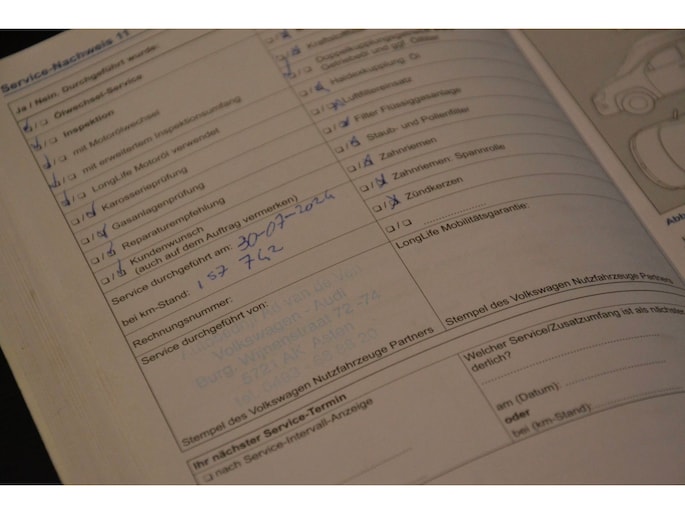 Service-Nachweis 11
Ja / Nein. Durchgeführt wurde:
Ölwechsel-Service
Inspektion
mit Motorölwechsel
mit erweitertem Inspektionsumfang
LongLife Motoröl verwendet
Karosserieprüfung
Gasanlagenprüfung
Reparaturempfehlung
Kundenwunsch
(auch auf dem Auftrag vermerken)
Service durchgeführt am: 30-07-2024
bei km-Stand: 157 742
Rechnungsnummer:
Service durchgeführt von:
Volkswagen - Audi
72 - 74
Stempel des Volkswagen Nutzfahrzeuge Partners
Ihr nächster Service-Termin
nach Service-Intervall-Anzeige
Doppelkupplungsgetriebe
Getriebeöl und ggf. Ölfilter
Haldexkupplung: Öl
Luftfiltereinsatz
Filter Flüssiggasanlage
Staub- und Pollenfilter
Zahnriemen
Zahnriemen: Spannrolle
Zündkerzen
LongLife Mobilitätsgarantie:
Stempel des Volkswagen Nutzfahrzeuge Partners
Welcher Service/Zusatzumfang ist als nächster
derlich?
am (Datum):
oder
bei (km-Stand):